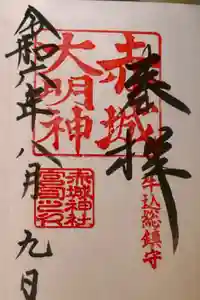 奉拝
牛込総鎮守
赤城
大明神
赤城神社
宮司之印
令和八年八月九日